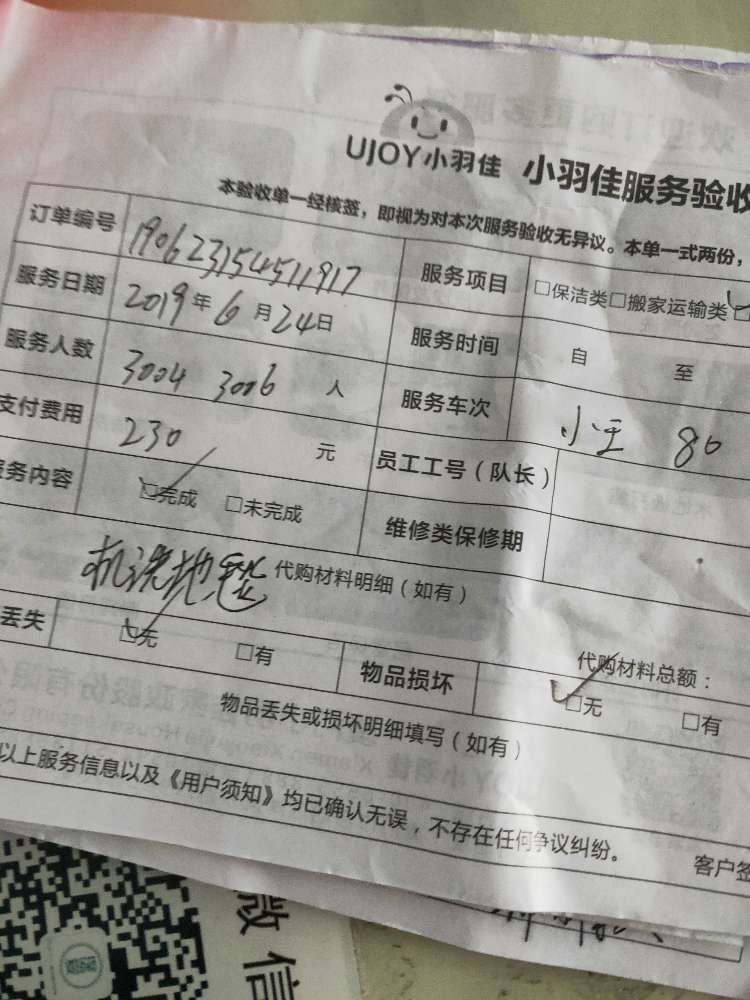 UJOY小羽佳 小羽佳服务验收
本验收单一经核签，即视为对本次服务验收无异议。本单一式两份，
订单编号 190623154511917 服务项目 □保洁类□搬家运输类
服务日期 2019年6月24日 服务时间 自 至
服务人数 3004 3006 人 服务车次 小王 80
支付费用 230 元 员工工号（队长）
服务内容 □完成 □未完成 维修类保修期
机洗地毯 代购材料明细（如有）
代购材料总额：
丢失 □无 □有 物品损坏 □无 □有
物品丢失或损坏明细填写（如有）
以上服务信息以及《用户须知》均已确认无误，不存在任何争议纠纷。
客户签
微信